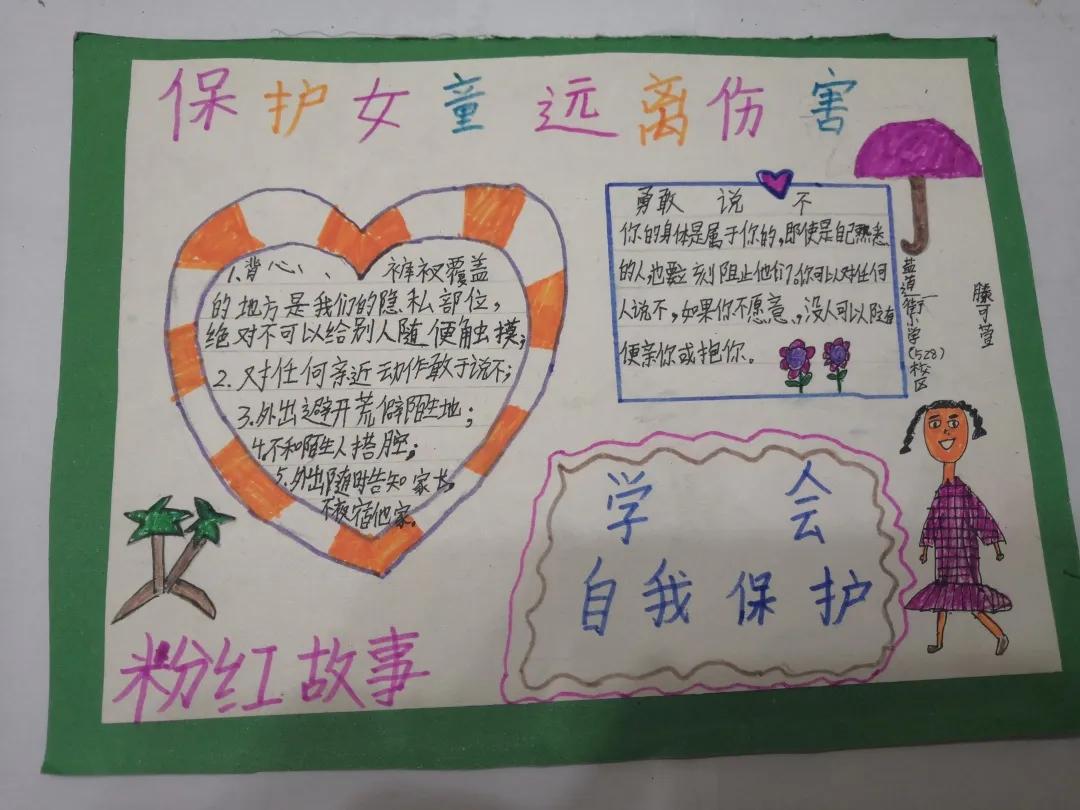 保护女童远离伤害
1.背心、、裤衩覆盖
的地方是我们的隐私部位,
绝对不可以给别人随便触摸;
2.对任何亲近动作敢于说不;
3.外出避开荒僻陌生地;
4.不和陌生人搭腔;
5.外出随时告知家长,
不夜宿他家。
勇敢说不
你的身体是属于你的,即使是自己熟悉
的人也要立刻阻止他们了。你可以对任何
人说不,如果你不愿意,没人可以随
便亲你或抱你。
盐道街小学(528)校区
滕可萱
学会
自我保护
粉红故事